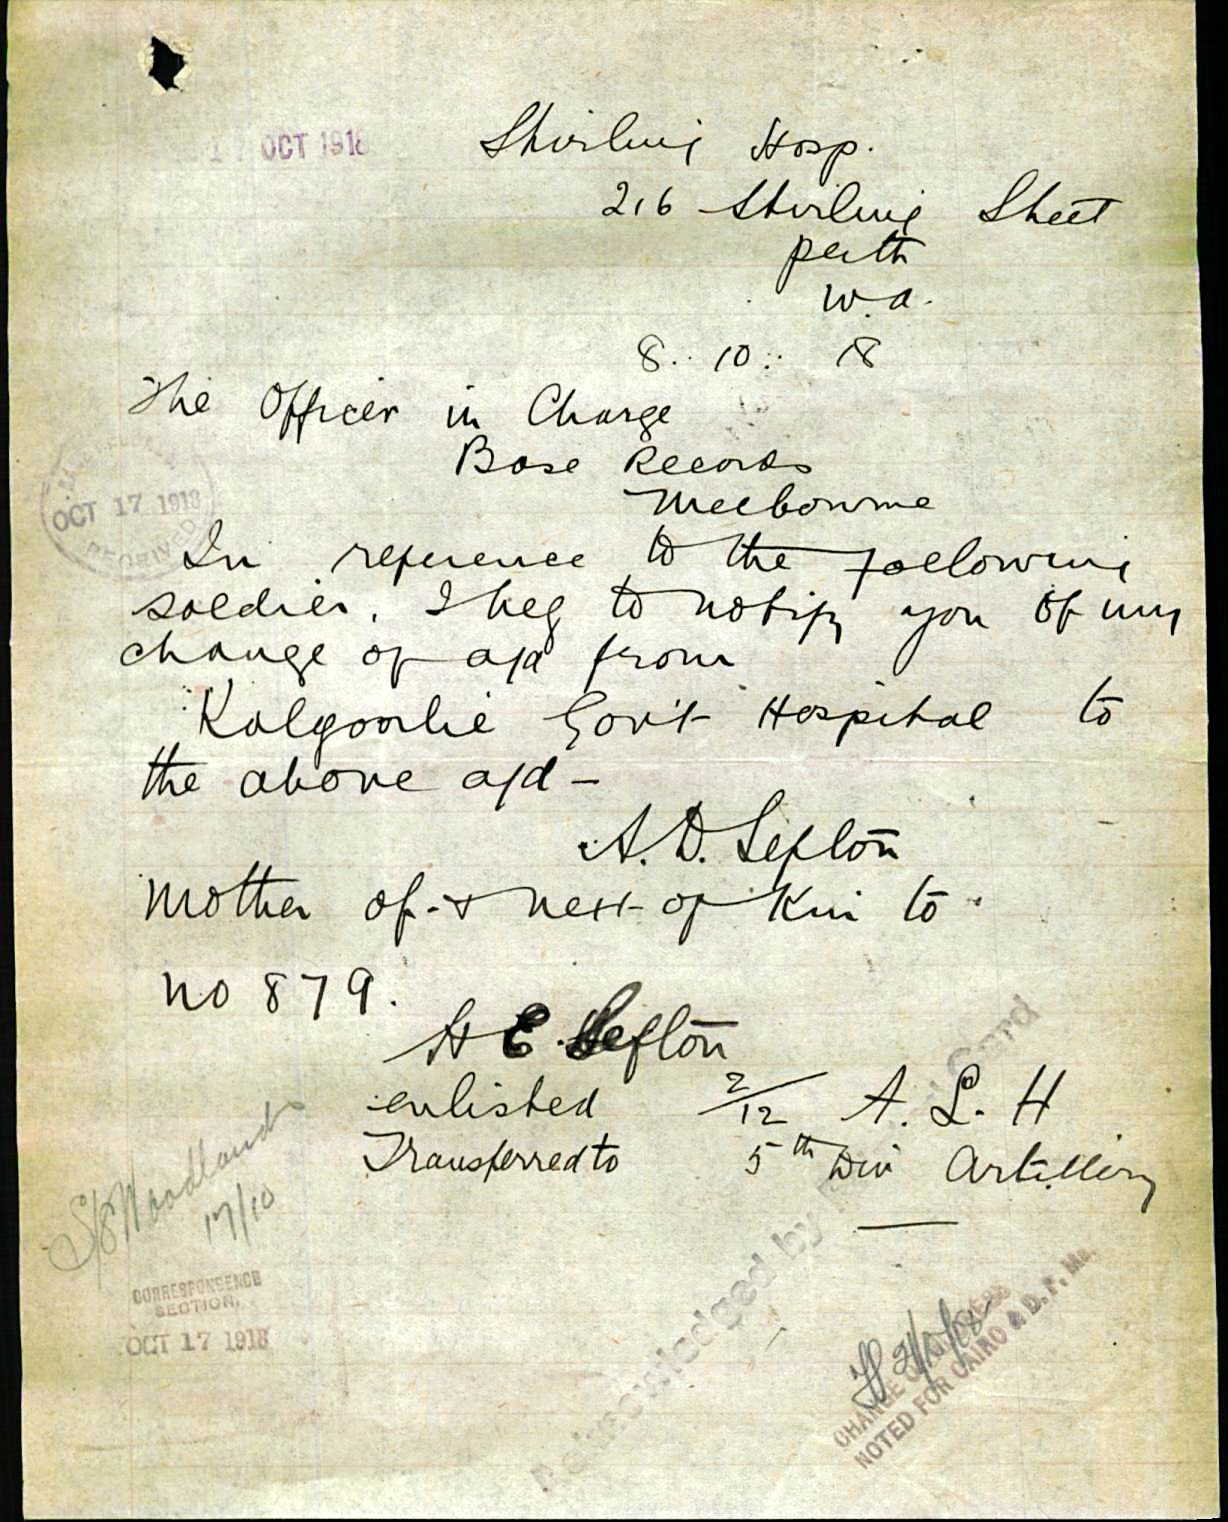 17 OCT 1918
Stirling Hosp.
216 Stirling Street
Perth
W.A.
8. 10. 18
The Officer in Charge
Base Records
Melbourne
OCT 17 1918
RECEIVED
In reference to the following
soldier. I beg to notify you of my
change of a/d from
Kalgoorlie Gov't Hospital to
the above a/d -
A. D. Sefton
Mother of & next of Kin to
no 879.
H E. Sefton
enlisted 2/12 A. L. H
Transferred to 5th Div Artillery
Woodland
17/10
CORRESPONSENCE
SECTION.
OCT 17 1918
Acknowledged by Card
CHANGE OF ADDRESS
NOTED FOR CAIRO & D. F. Mo.